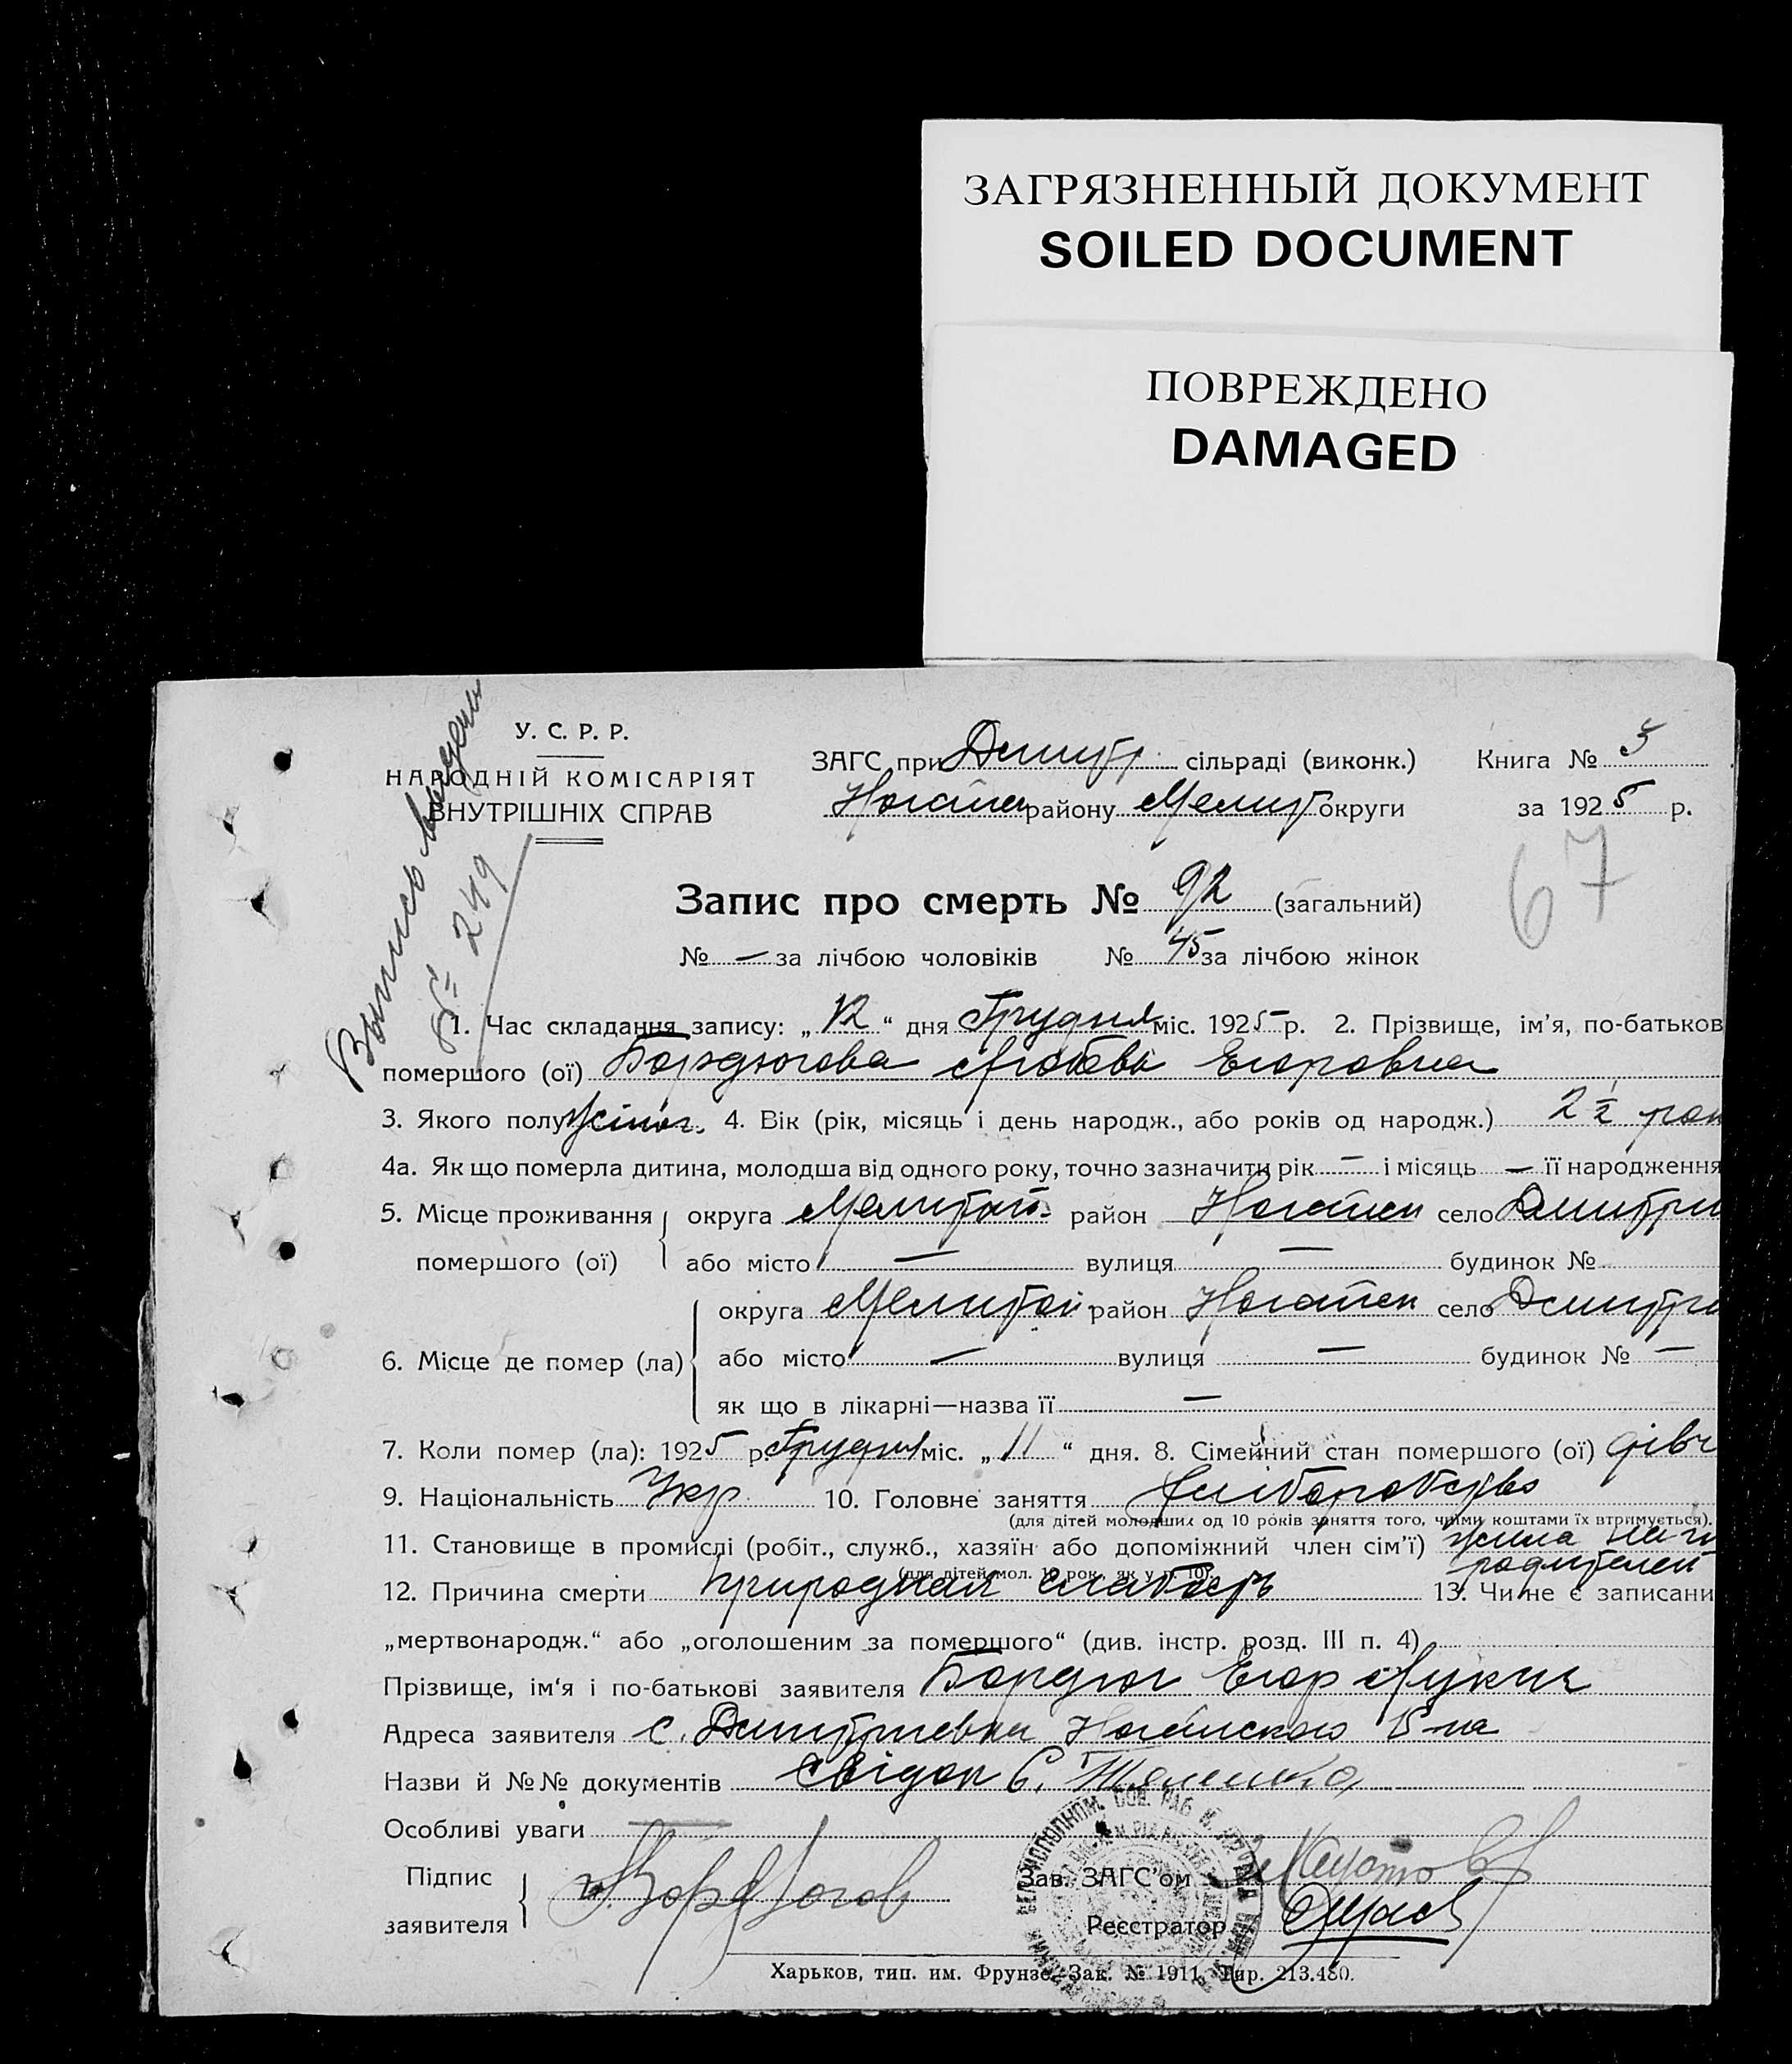 ЗАГРЯЗНЕННЫЙ ДОКУМЕНТ
SOILED DOCUMENT
ПОВРЕЖДЕНО
DAMAGED
У. С. Р. Р.
НАРОДНІЙ КОМІСАРІЯТ
ВНУТРІШНІХ СПРАВ
Выпись
№ 249
ЗАГС при Дмитр. сільраді (виконк.)
району Мелит округи
Книга № 3
за 1925 р.
67
Запис про смерть № 92 (загальний)
№ — за лічбою чоловіків № 45 за лічбою жінок
1. Час складання запису: „ 12 “ дня Грудня міс. 1925 р. 2. Прізвище, ім’я, по-батьков
помершого (ої) Бордюгова Любовь Егоровна
3. Якого полу жіноч. 4. Вік (рік, місяць і день народж., або років од народж.) 2 1/2 рок
4а. Як що померла дитина, молодша від одного року, точно зазначити рік — і місяць — її народження
5. Місце проживання округа Мелитоп. район Ногайск село Дмитри
помершого (ої) або місто — вулиця — будинок №
округа Мелитоп район Ногайск село Дмитри
6. Місце де помер (ла) або місто — вулиця — будинок № —
як що в лікарні—назва її —
7. Коли помер (ла): 1925 р. Грудня міс. „ 11 “ дня. 8. Сімейний стан помершого (ої) дівч
9. Національність Укр. 10. Головне заняття хліборобство
(для дітей молодших од 10 років заняття того, чиїми коштами їх втримується).
11. Становище в промислі (робіт., служб., хазяїн або допоміжний член сім’ї) жила на
родителей
(для дітей мол. 10 рок. як у п. 10).
12. Причина смерти природная слабость 13. Чи не є записани
„мертвонародж.“ або „оголошеним за помершого“ (див. інстр. розд. III п. 4)
Прізвище, ім‘я і по-батькові заявителя Бордюг Егор Лукич
Адреса заявителя с. Дмитриевка Ногайского р-на
Назви й №№ документів Свідок С.
Особливі уваги —
Підпис
заявителя Бордюгов
Зав. ЗАГС’ом
Реєстратор
Харьков, тип. им. Фрунзе. Зак. № 1911. Тир. 213.480.